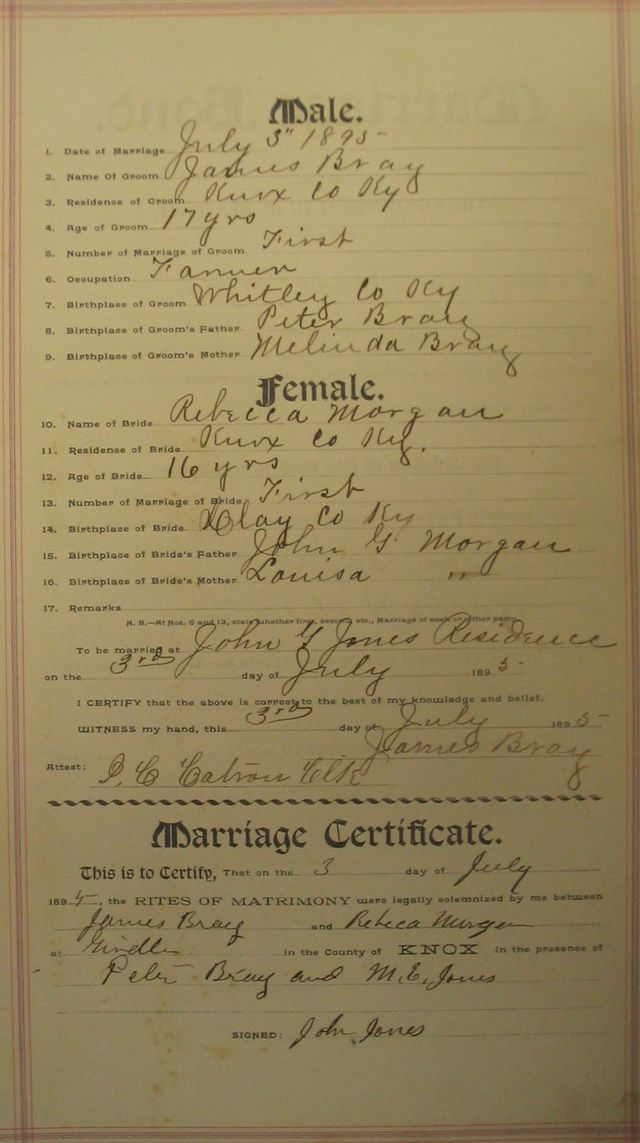 Male.
1. Date of Marriage July 3" 1895
2. Name Of Groom James Bray
3. Residence of Groom Knox Co Ky
4. Age of Groom 17 yrs
5. Number of Marriage of Groom First
6. Occupation Farmer
7. Birthplace of Groom Whitley Co Ky
8. Birthplace of Groom's Father Peter Bray
9. Birthplace of Groom's Mother Melinda Bray
Female.
10. Name of Bride Rebecca Morgan
11. Residence of Bride Knox Co Ky.
12. Age of Bride 16 yrs
13. Number of Marriage of Bride First
14. Birthplace of Bride Clay Co Ky
15. Birthplace of Bride's Father John G Morgan
16. Birthplace of Bride's Mother Louisa "
17. Remarks
N. B.—At Nos. 5 and 13, state whether first, second, etc., Marriage of each or either party.
To be married at John G Jones Residence
on the 3rd day of July 1895
I CERTIFY that the above is correct to the best of my knowledge and belief.
WITNESS my hand, this 3rd day of July 1895
James Bray
Attest: Catron Clk
Marriage Certificate.
This is to Certify, That on the 3 day of July
189, the RITES OF MATRIMONY were legally solemnized by me between
James Bray and Rebeca Morgan
at in the County of KNOX in the presence of
Peter Bray and M. E. Jones
SIGNED: John Jones